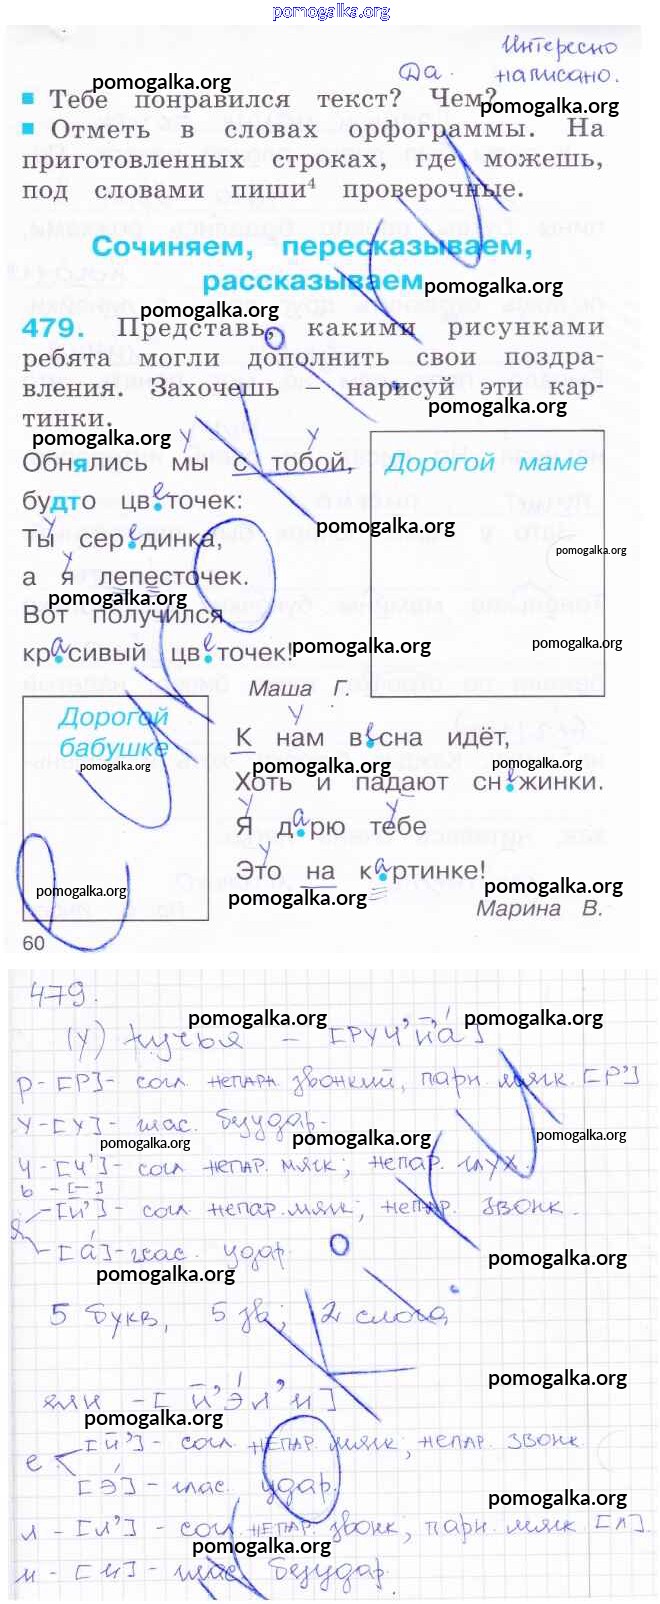 pomogalka.org
Интересно
Да. написано.
Тебе понравился текст? Чем?
Отметь в словах орфограммы. На
приготовленных строках, где можешь,
под словами пиши⁴ проверочные.
Сочиняем, пересказываем,
рассказываем
479. Представь, какими рисунками
ребята могли дополнить свои поздра-
вления. Захочешь – нарисуй эти кар-
тинки.
Обнялись мы с тобой,
будто цветочек:
Ты серединка,
а я лепесточек.
Вот получился
красивый цветочек!
Маша Г.
Дорогой маме
Дорогой
бабушке
К нам весна идёт,
Хоть и падают снежинки.
Я дарю тебе
Это на картинке!
Марина В.
60
479.
(У) ручья – [РУЧ'Й'А́]
Р-[Р]- согл непарн. звонкий, парн. мягк. [Р']
У-[У]- глас. безудар.
Ч-[Ч']- согл непар. мягк; непар. глух.
ь - [-]
я [Й']- согл. непар. мягк; непар. звонк.
[а́]-глас. удар.
5 букв, 5 зв; 2 слога
ели - [Й'Э́Л'И]
е [Й'] - согл. непар. мягк; непар. звонк.
[Э́]- глас. удар.
л - [Л']- согл. непар. звонк; парн. мягк [Л].
и - [И]- глас безудар.